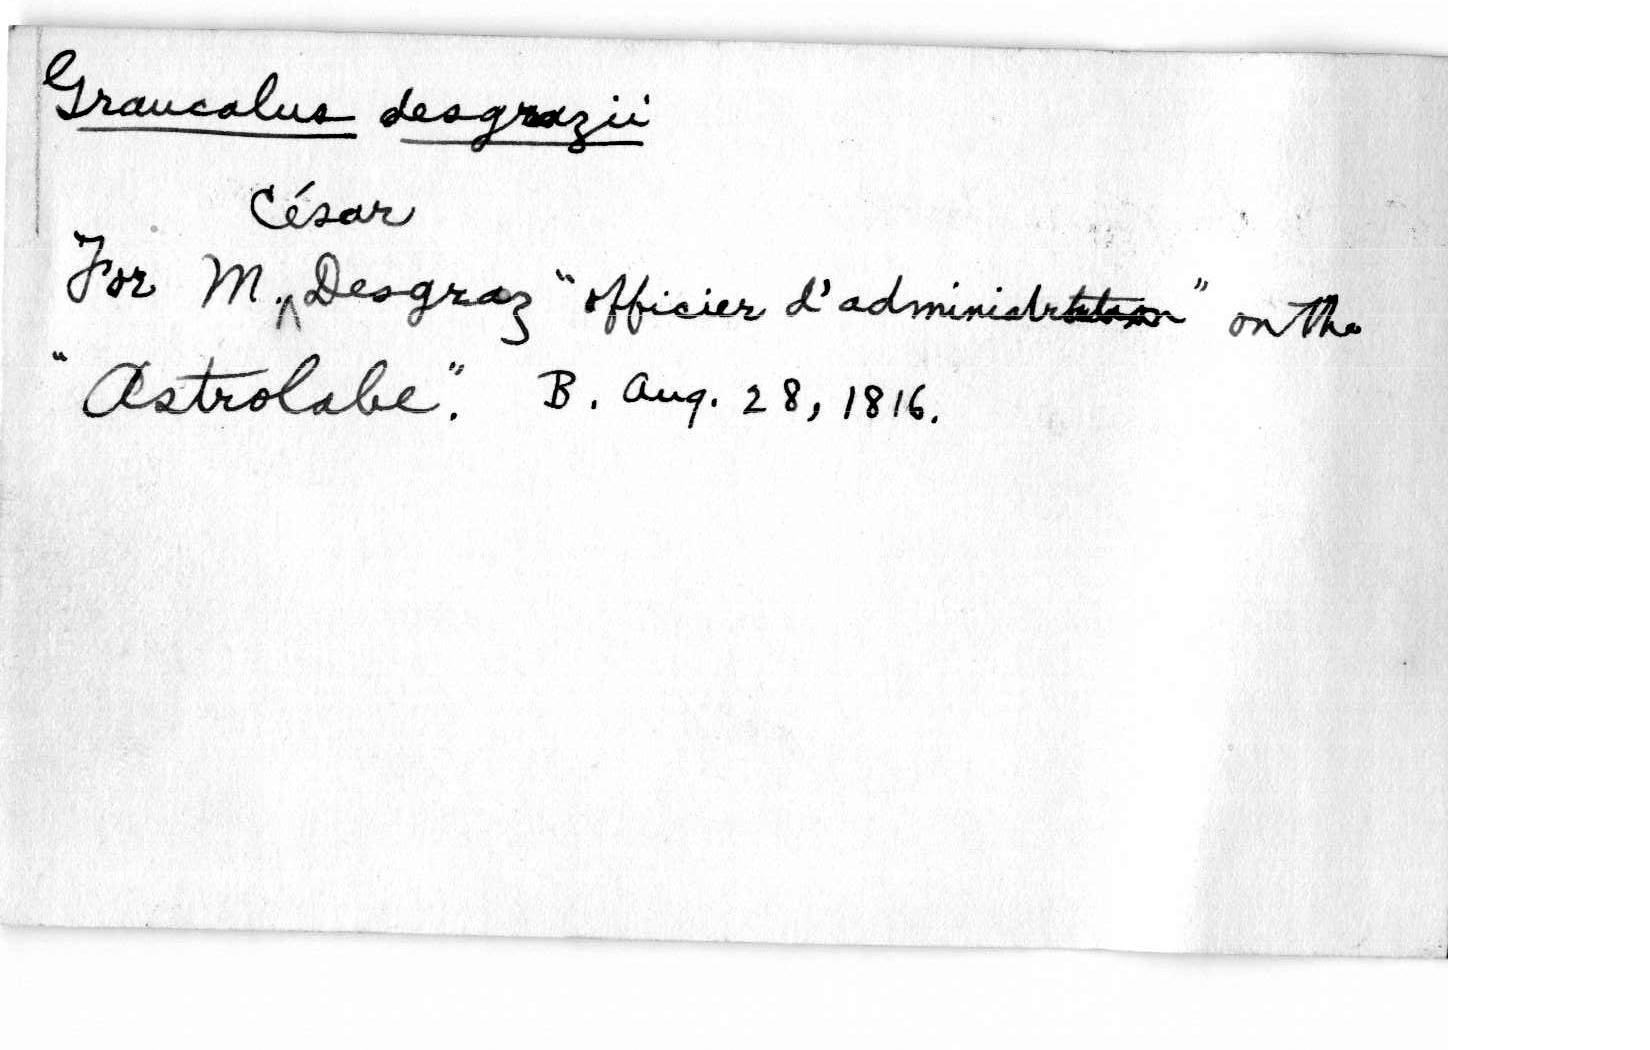 Graucalus desgrazii
César
For M. ‸ Desgraz "officier d'administration" on the
"Astrolabe". B. Aug. 28, 1816.